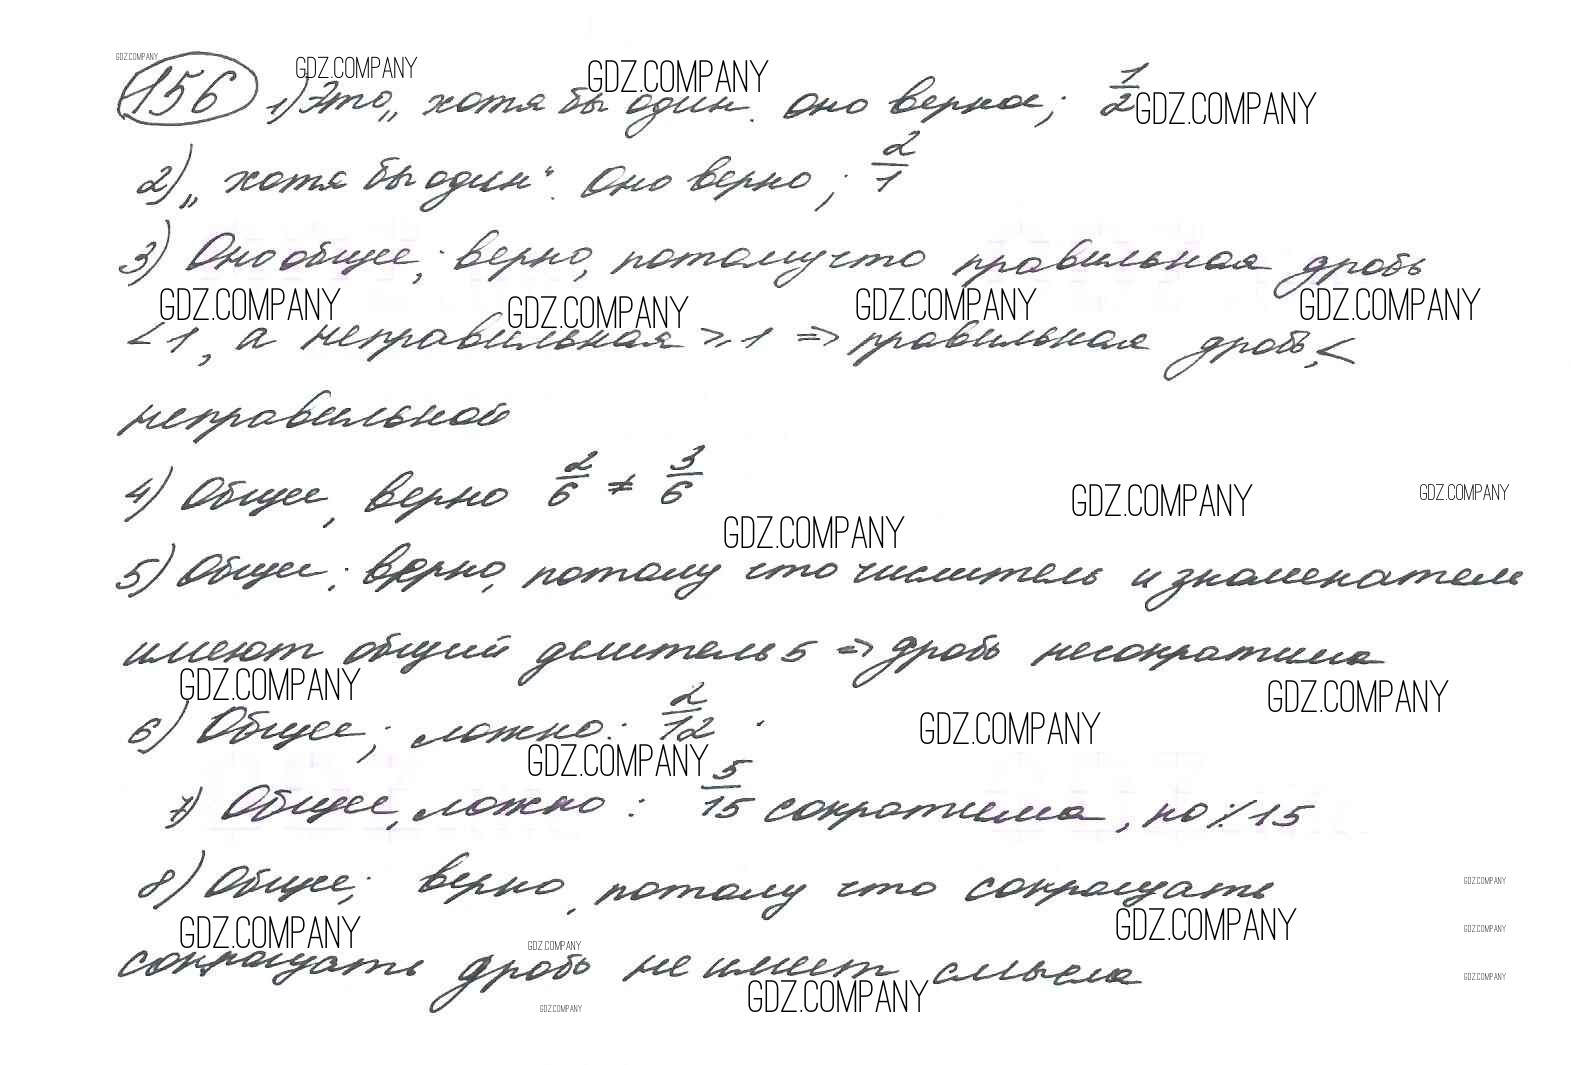 GDZ.COMPANY GDZ.COMPANY GDZ.COMPANY
156 1) Это „ хотя бы один. Оно верное; 1/2 GDZ.COMPANY
2) „ хотя бы один“. Оно верно; 2/1
3) Оно общее; верно, потому что правильная дробь
GDZ.COMPANY GDZ.COMPANY GDZ.COMPANY GDZ.COMPANY
< 1, а неправильная ≥ 1 => правильная дробь, <
неправильной
4) Общее, верно 2/6 ≠ 3/6
GDZ.COMPANY GDZ.COMPANY
GDZ.COMPANY
5) Общее; верно, потому что числитель и знаменатель
имеют общий делитель 5 => дробь несократима
GDZ.COMPANY GDZ.COMPANY
6) Общее; ложно: 2/12 .
GDZ.COMPANY
GDZ.COMPANY
7) Общее, ложно: 5/15 сократима, но ⁒ 15
8) Общее; верно, потому что сокращать
GDZ.COMPANY
GDZ.COMPANY GDZ.COMPANY GDZ.COMPANY
GDZ.COMPANY
сокращать дробь не имеет смысла
GDZ.COMPANY
GDZ.COMPANY GDZ.COMPANY